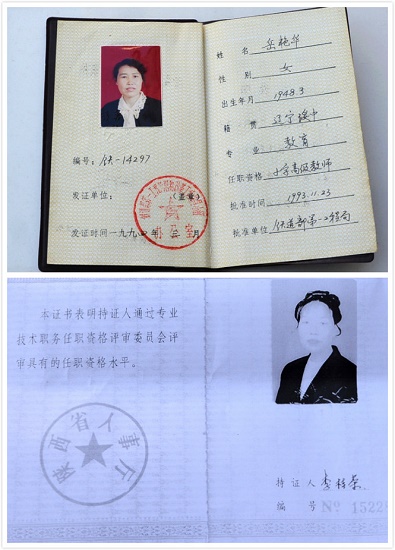 编号：铁-14297
发证单位：
(盖章)
发证时间一九九四年三月
姓名 岳艳华
性别 女
出生年月 1948.3
籍贯 辽宁绥中
专业 教育
任职资格 小学高级教师
批准时间 1993.11.23
批准单位 铁道部第一工程局
本证书表明持证人通过专业
技术职务任职资格评审委员会评
审具有的任职资格水平。
陕西省人事厅
持证人 李桂荣
编号 No 1522